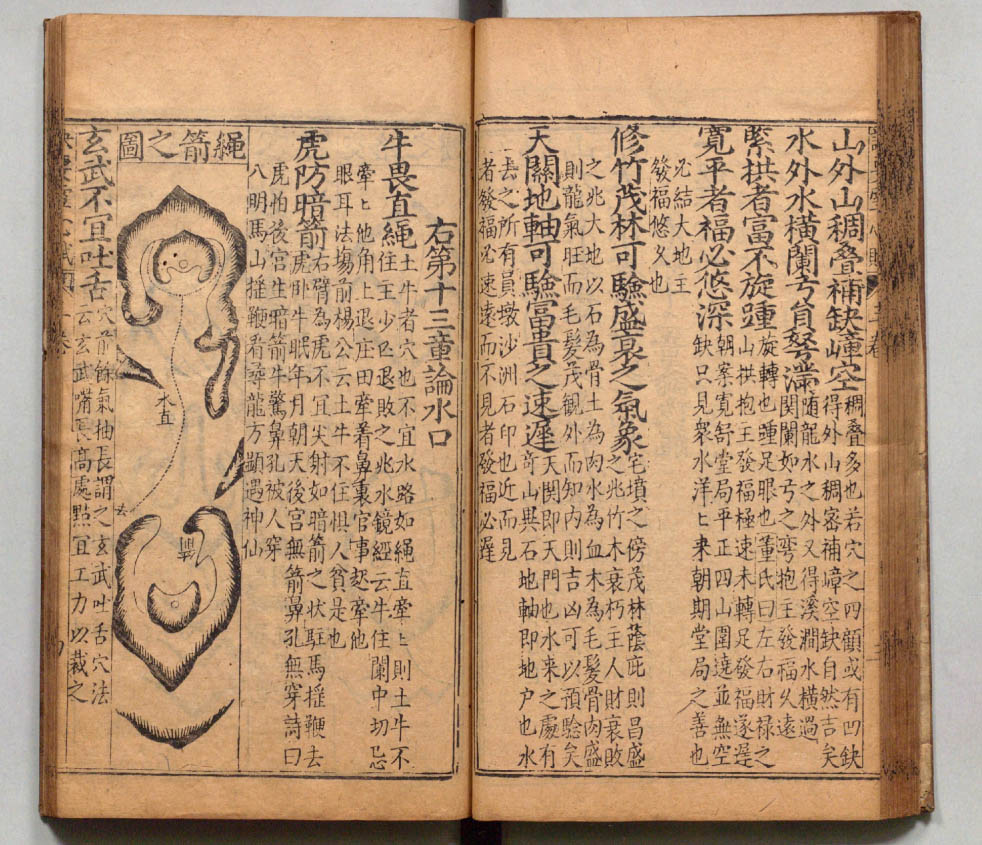 山外山稠叠補缺嶂空稠叠多也若穴之四顧或有凹缺得外山稠密補嶂空缺自然吉矣
水外水橫闌弓員弩滿隨龍水之外又得溪澗水橫過関闌如弓之弯抱主發福久遠
緊拱者富不旋踵旋轉也踵足眼也董氏曰左右財禄之山拱抱主發福極速未轉足發福遂遲
寬平者福必悠深朝案寬舒堂局平正四山圍遶並無空缺只見衆水洋ヒ来朝期堂局之善也
必結大地主
發福悠久也
修竹茂林可驗盛衰之氣象宅墳之傍茂林蔭庇則昌盛之兆竹木衰朽主人財衰敗
之兆大地以石為骨土為肉水為血木為毛髮骨肉盛
則龍氣旺而毛髮茂観外而知内則吉凶可以預驗矣
天關地軸可驗富貴之速遲天関即天門也水来之處有奇山異石地軸即地户也水
去之所有員墩沙洲石印也近而見
者發福必速遠而不見者發福必遲
右第十三章論水口
牛畏直繩土牛者穴也不宜水路如繩直牽ヒ則土牛不住主少亡退敗之兆水鏡經云牛住闌中切忌
牽ヒ他角上退庄田牽着鼻裏官事起牽他
眼耳法塲前楊公云土牛不住惧人貧是也
虎防暗箭右臂為虎不宜尖射如暗箭之状駐馬揺鞭去虎卧牛眠年月朝天後宫無箭鼻孔無穿詩曰
虎怕後宫生暗箭牛驚鼻孔被人穿
八明馬山揺鞭看彛龍方顯遇神仙
繩箭之圖
水直
去
玄武不宜吐舌穴前餘氣抽長謂之玄武吐舌穴法云玄武嘴長高處點宜工力以裁之